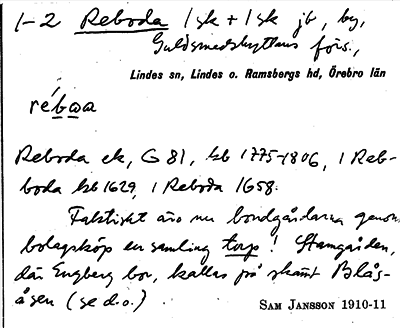 1-2 Reboda 1 sk + 1 sk jb, by,
Guldsmedshyttans förs.,
Lindes sn, Lindes o. Ramsbergs hd, Örebro län
rébωa
Reboda ek, G 81, kb 1775-1806, i Reb-
boda kb 1629, i Reboda 1658.
Faktiskt äro nu bondgårdarna genom
bolagsköp en samling torp! Stamgården,
där Engberg bor, kallas på skämt Blås-
åsen (se d.o.).
SAM JANSSON 1910-11